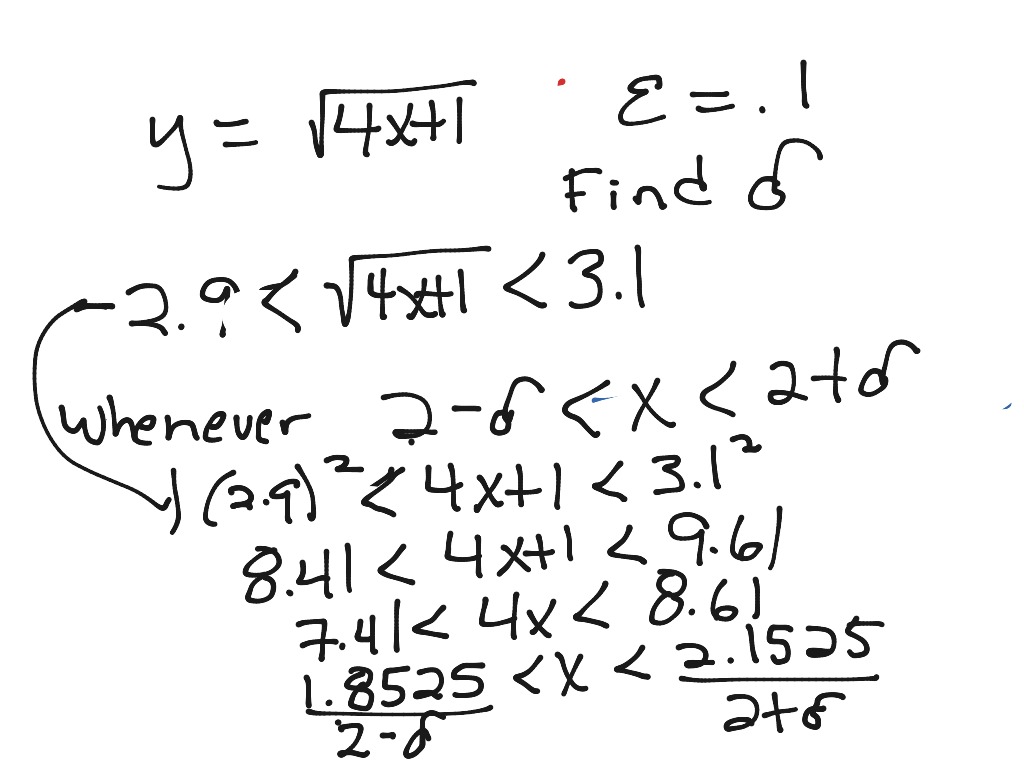 y = √4x+1 ε = .1
Find δ
2.9 < √4x+1 < 3.1
whenever 2-δ < x < 2+δ
(2.9)² < 4x+1 < 3.1²
8.41 < 4x+1 < 9.61
7.41 < 4x < 8.61
1.8525 < x < 2.1525
2-δ 2+δ